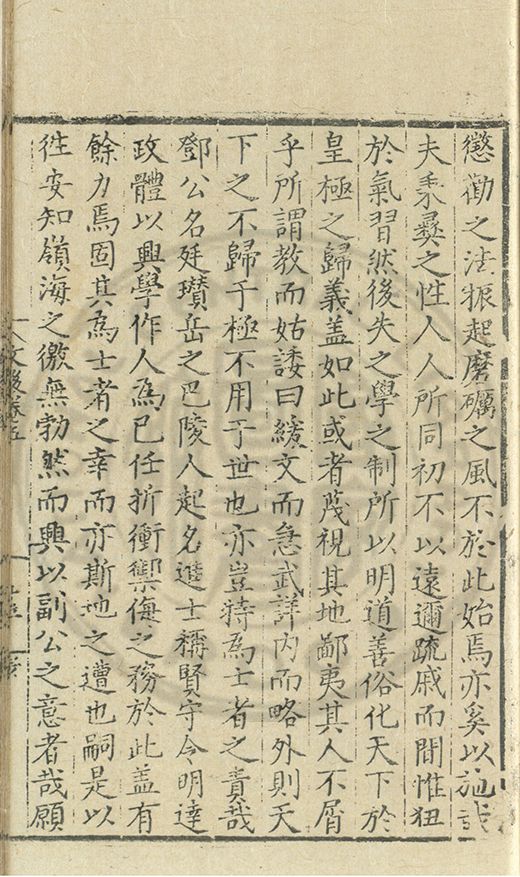 懲勸之法振起磨礪之風不於此始焉亦奚以施哉
夫秉彝之性人人所同初不以遠邇疏戚而間惟狃
於氣習然後失之學之制所以明道善俗化天下於
皇極之歸義盖如此或者蔑視其地鄙夷其人不屑
乎所謂教而姑諉曰緩文而急武詳内而略外則天
下之不歸于極不用于世也亦豈特為士者之責哉
鄧公名廷瓚岳之巴陵人起名進士稱賢守令明達
政體以興學作人為已任折衝禦侮之務於此盖有
餘力焉固其為士者之幸而亦斯地之遭也嗣是以
徃安知嶺海之徼無勃然而興以副公之意者哉願